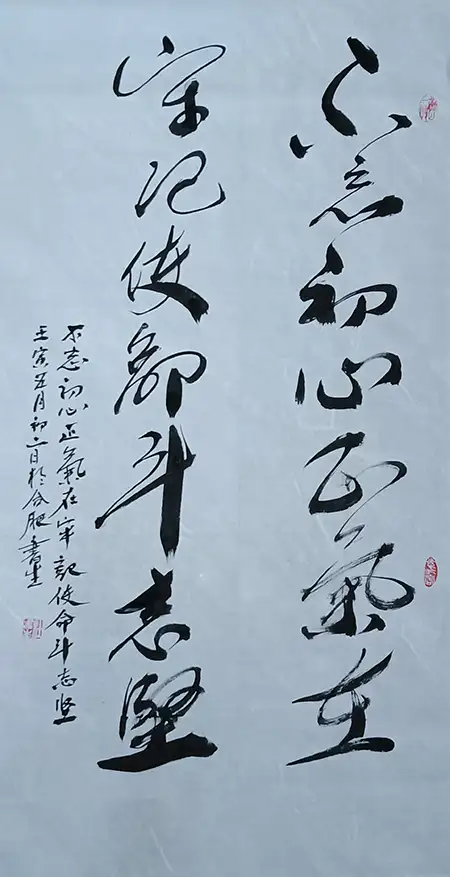 不忘初心正氣在
牢记使命斗志坚
不忘初心正氣在牢記使命斗志坚
壬寅五月初六日於合肥書生